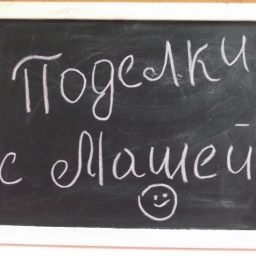 Поделки
с Машей